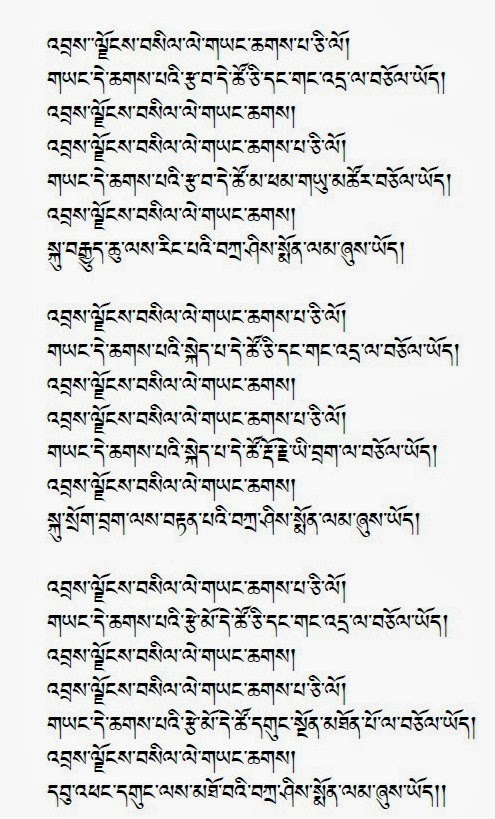 འབྲས་ལྗོངས་བསིལ་ལེ་གཡང་ཆགས་པ་ཅི་ལོ།
གཡང་དེ་ཆགས་པའི་རྩ་བ་དེ་ཚོ་ཅི་དང་གང་འདྲ་ལ་བཅོལ་ཡོད།
འབྲས་ལྗོངས་བསིལ་ལེ་གཡང་ཆགས།
འབྲས་ལྗོངས་བསིལ་ལེ་གཡང་ཆགས་པ་ཅི་ལོ།
གཡང་དེ་ཆགས་པའི་རྩ་བ་དེ་ཚོ་མ་ཕམ་གཡུ་མཚོར་བཅོལ་ཡོད།
འབྲས་ལྗོངས་བསིལ་ལེ་གཡང་ཆགས།
སྐུ་བརྒྱུད་ཆུ་ལས་རིང་པའི་བཀྲ་ཤིས་སྨོན་ལམ་ཞུས་ཡོད།
འབྲས་ལྗོངས་བསིལ་ལེ་གཡང་ཆགས་པ་ཅི་ལོ།
གཡང་དེ་ཆགས་པའི་སྐེད་པ་དེ་ཚོ་ཅི་དང་གང་འདྲ་ལ་བཅོལ་ཡོད།
འབྲས་ལྗོངས་བསིལ་ལེ་གཡང་ཆགས།
འབྲས་ལྗོངས་བསིལ་ལེ་གཡང་ཆགས་པ་ཅི་ལོ།
གཡང་དེ་ཆགས་པའི་སྐེད་པ་དེ་ཚོ་རྡོ་རྗེ་ཡི་བྲག་ལ་བཅོལ་ཡོད།
འབྲས་ལྗོངས་བསིལ་ལེ་གཡང་ཆགས།
སྐུ་སྲོག་བྲག་ལས་བརྟན་པའི་བཀྲ་ཤིས་སྨོན་ལམ་ཞུས་ཡོད།
འབྲས་ལྗོངས་བསིལ་ལེ་གཡང་ཆགས་པ་ཅི་ལོ།
གཡང་དེ་ཆགས་པའི་རྩེ་མོ་དེ་ཚོ་ཅི་དང་གང་འདྲ་ལ་བཅོལ་ཡོད།
འབྲས་ལྗོངས་བསིལ་ལེ་གཡང་ཆགས།
འབྲས་ལྗོངས་བསིལ་ལེ་གཡང་ཆགས་པ་ཅི་ལོ།
གཡང་དེ་ཆགས་པའི་རྩེ་མོ་དེ་ཚོ་དགུང་སྔོན་མཐོན་པོ་ལ་བཅོལ་ཡོད།
འབྲས་ལྗོངས་བསིལ་ལེ་གཡང་ཆགས།
དབུ་འཕང་དགུང་ལས་མཐོ་བའི་བཀྲ་ཤིས་སྨོན་ལམ་ཞུས་ཡོད།།